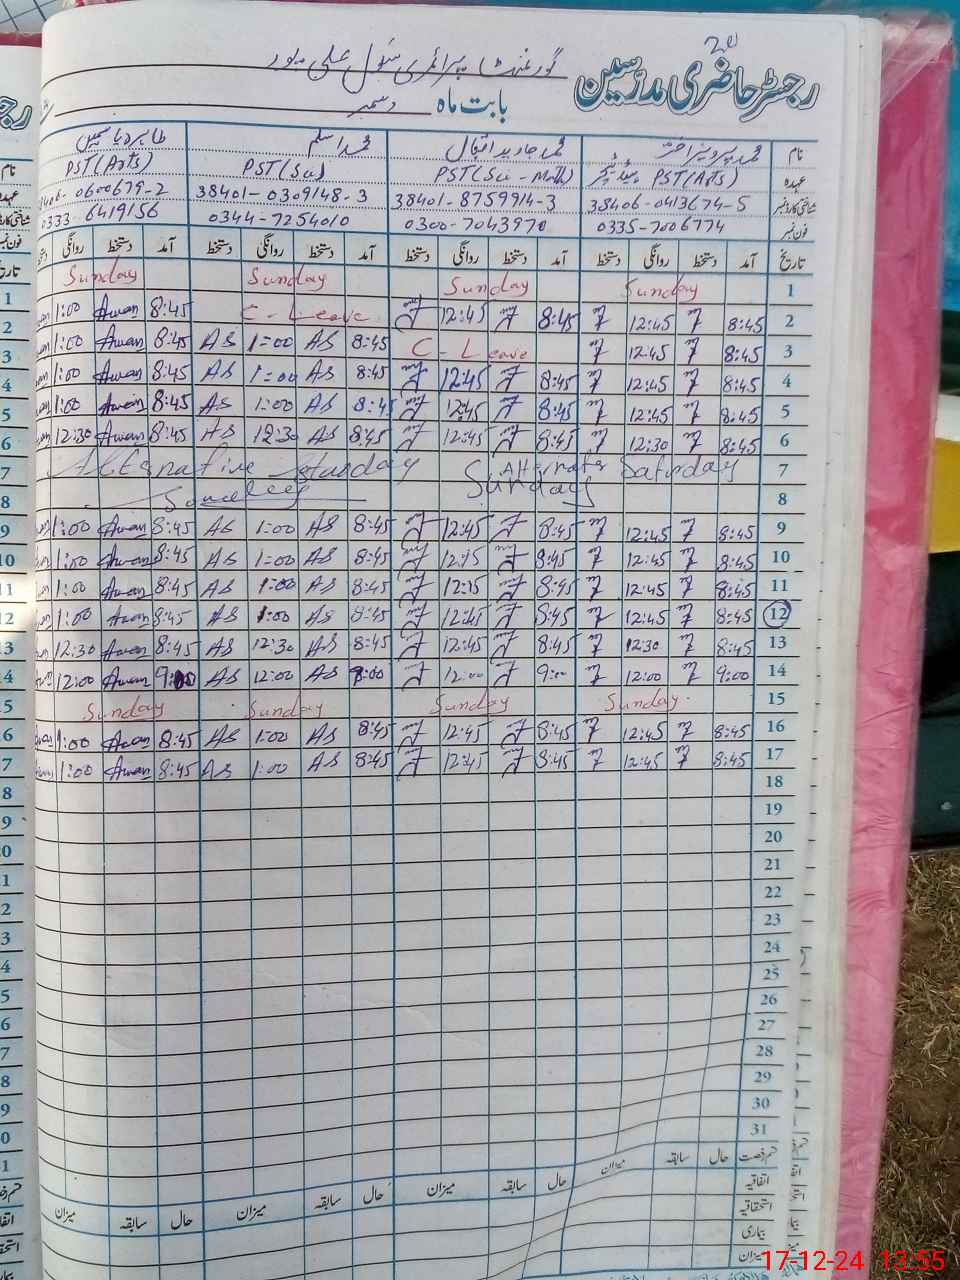 رجسٹر حاضری مدرسین
گورنمنٹ پرائمری سکول علی پور
بابت ماہ دسمبر
نام محمد پرویز اختر محمد جاوید اقبال محمد اسلم طاہرہ یاسمین
عہدہ PST(Arts) PST(Sci-Math) PST(Sci) PST(Arts)
شناختی کارڈ نمبر 38406-0413674-5 38401-8759914-3 38401-0309148-3 0600679-2
فون نمبر 0335-7006774 0300-7043970 0344-7254010 0333-6419156
تاریخ آمد دستخط روانگی دستخط آمد دستخط روانگی دستخط آمد دستخط روانگی دستخط آمد دستخط روانگی
1 Sunday Sunday Sunday Sunday
2 8:45 12:45 8:45 12:45 C-Leave 8:45 Awan 1:00
3 8:45 12:45 C-Leave 8:45 AS 1:00 AS 8:45 Awan 1:00
4 8:45 12:45 8:45 12:45 8:45 AS 1:00 AS 8:45 Awan 1:00
5 8:45 12:45 8:45 12:45 8:45 AS 1:00 AS 8:45 Awan 1:00
6 8:45 12:30 8:45 12:45 8:45 AS 12:30 AS 8:45 Awan 12:30
7 Alternate Saturday Alternative
8 Sunday
9 8:45 12:45 8:45 12:45 8:45 AS 1:00 AS 8:45 Awan 1:00
10 8:45 12:45 8:45 12:15 8:45 AS 1:00 AS 8:45 Awan 1:00
11 8:45 12:45 8:45 12:15 8:45 AS 1:00 AS 8:45 Awan 1:00
12 8:45 12:45 8:45 12:45 8:45 AS 1:00 AS 8:45 Awan 1:00
13 8:45 12:30 8:45 12:45 8:45 AS 12:30 AS 8:45 Awan 12:30
14 9:00 12:00 9:00 12:00 9:00 AS 12:00 AS 9:00 Awan 12:00
15 Sunday Sunday Sunday Sunday
16 8:45 12:45 8:45 12:45 8:45 AS 1:00 AS 8:45 Awan 1:00
17 8:45 12:45 8:45 12:45 8:45 AS 1:00 AS 8:45 Awan 1:00
18
19
20
21
22
23
24
25
26
27
28
29
30
31
قسم رخصت حال سابقہ میزان حال سابقہ میزان حال سابقہ میزان حال سابقہ میزان
اتفاقیہ
استحقاقیہ
بیماری
میزان
17-12-24 13:55